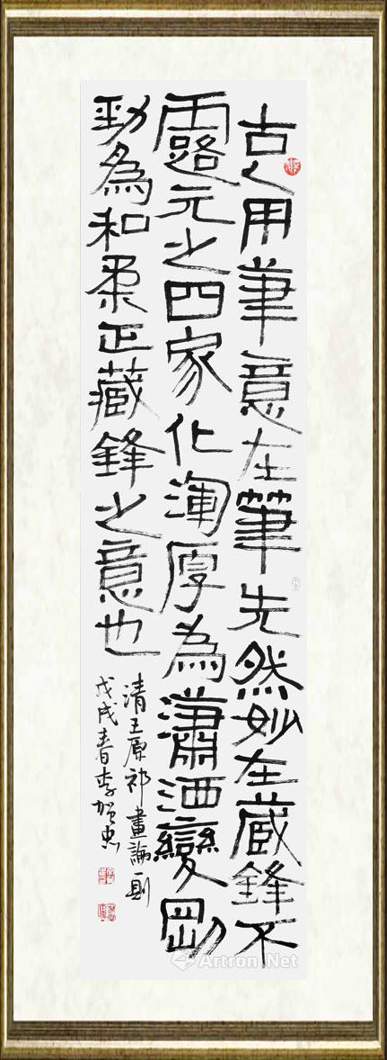 古人用筆意在筆先然妙在藏鋒不
露元之四家化渾厚為瀟洒變剛
勁為和柔正藏鋒之意也
清王原祁畫論一則
戊戌春李
Artron.Net